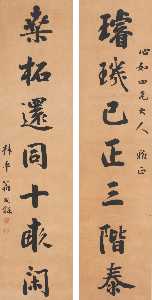 心如四兄大人雅正
璿璣已正三階泰
桑柘還同十畝閑
叔平翁同龢